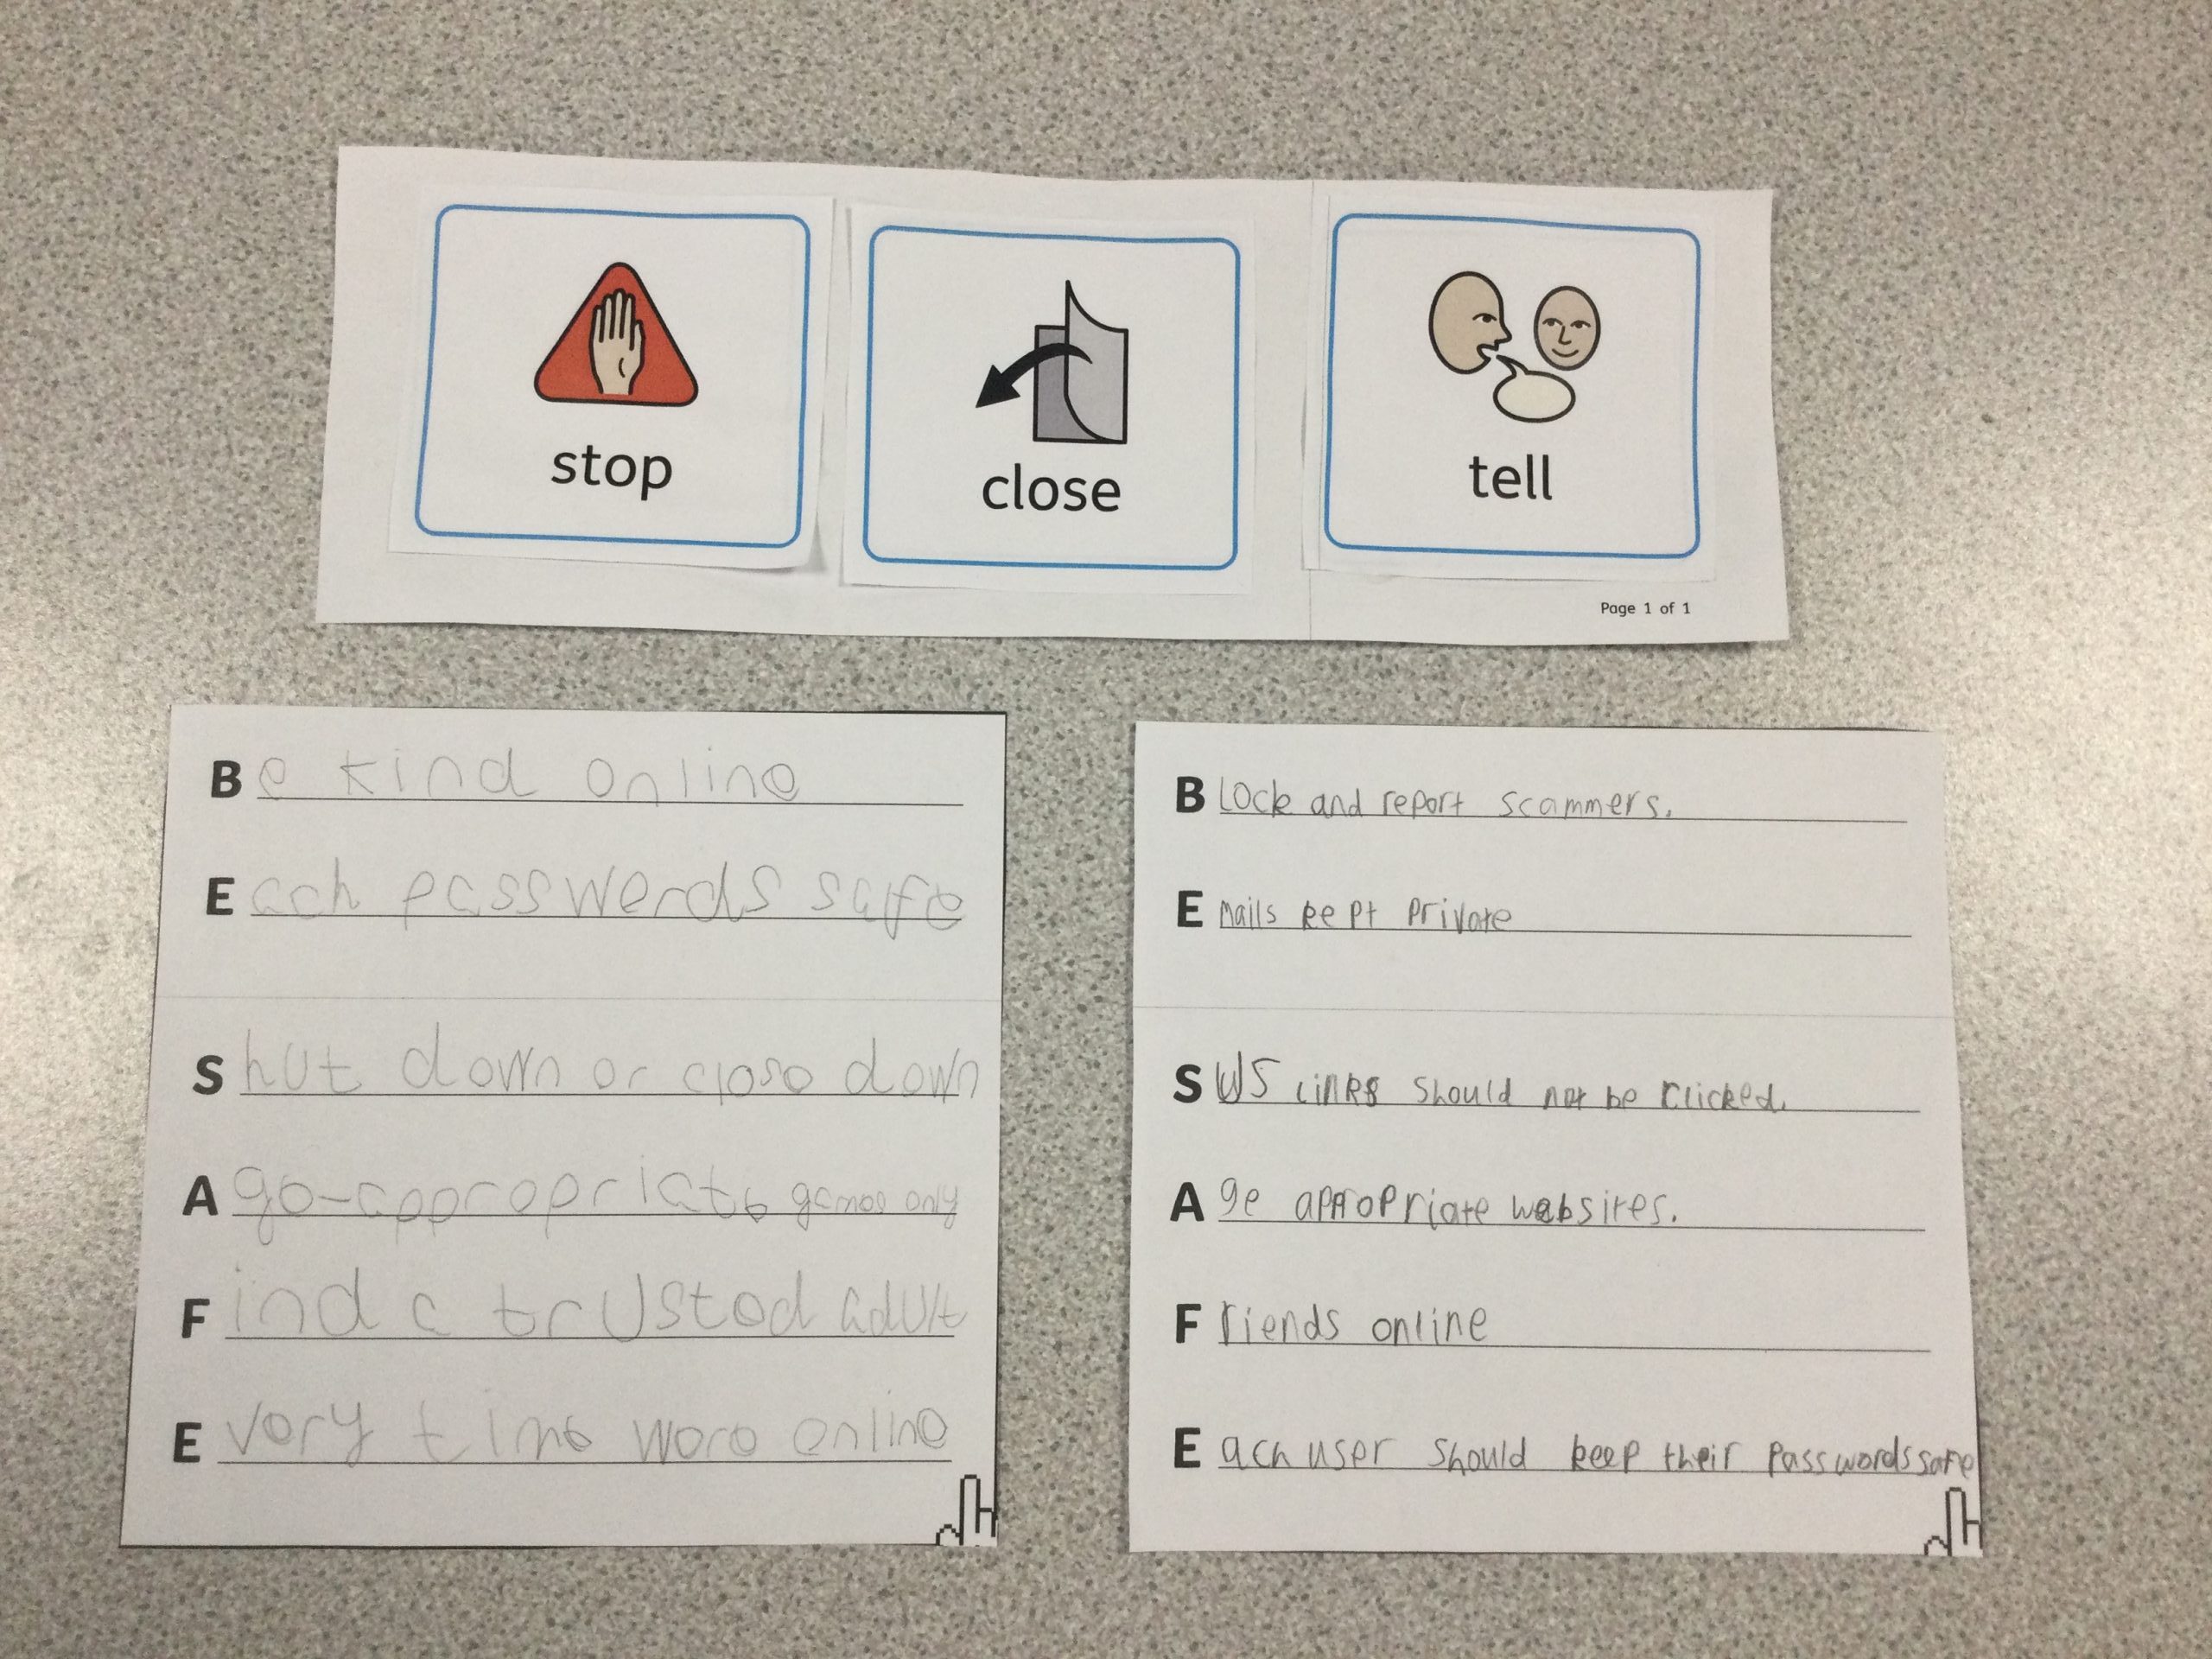 stop
close
tell
Page 1 of 1
Be kind online
Each passwerds safe
Shut down or close down
Age-appropriate games only
Find a trusted adult
Every time were online
Block and report scammers.
Emails kept private
SUS links should not be clicked.
Age appropriate websites.
Friends online
Each user should keep their passwords safe